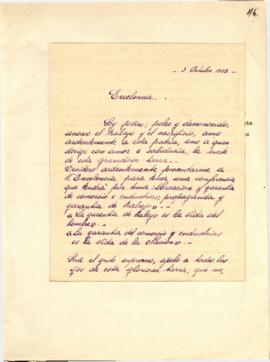 46.
- 3 Octubre 1923 -
Excelencia. -
joven, pobre y desconocido,
el trabajo y el sacrificio, amo
ardentemente a esta patria, amo a quien
dirige con amor e sabiduria, la suerte
de esta grandiosa tierra. -
Deseo ardentemente presentarme a
V. Excelencia, para una conferencia
que tendrá por tema: y garantia
de comercio e industrias, propaganda y
garantia de trabajo. -
La garantia de trabajo es la vida del
hombre. -
La garantia del comercio y industrias
es la vida de la -
Será el grito supremo, apelo a todos los
ijos de esta gloriosa tierra, que me